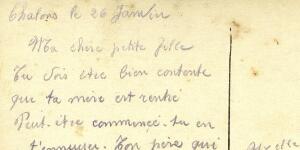 Chalons le 26 Janvier
Ma chère petite fille
Tu dois être bien contente
que ta mère est rentré
Peut-être commence-tu en
t'ennuyer. Ton père qui